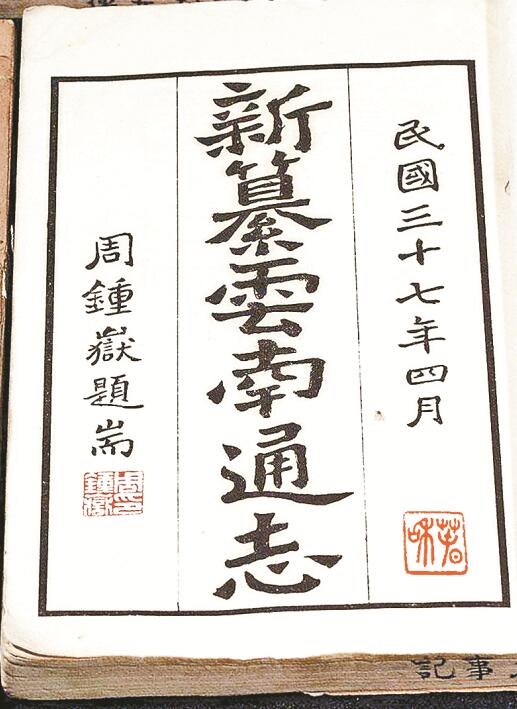 民國三十七年四月
新纂雲南通志
周鍾嶽題耑
周鍾嶽印
記事